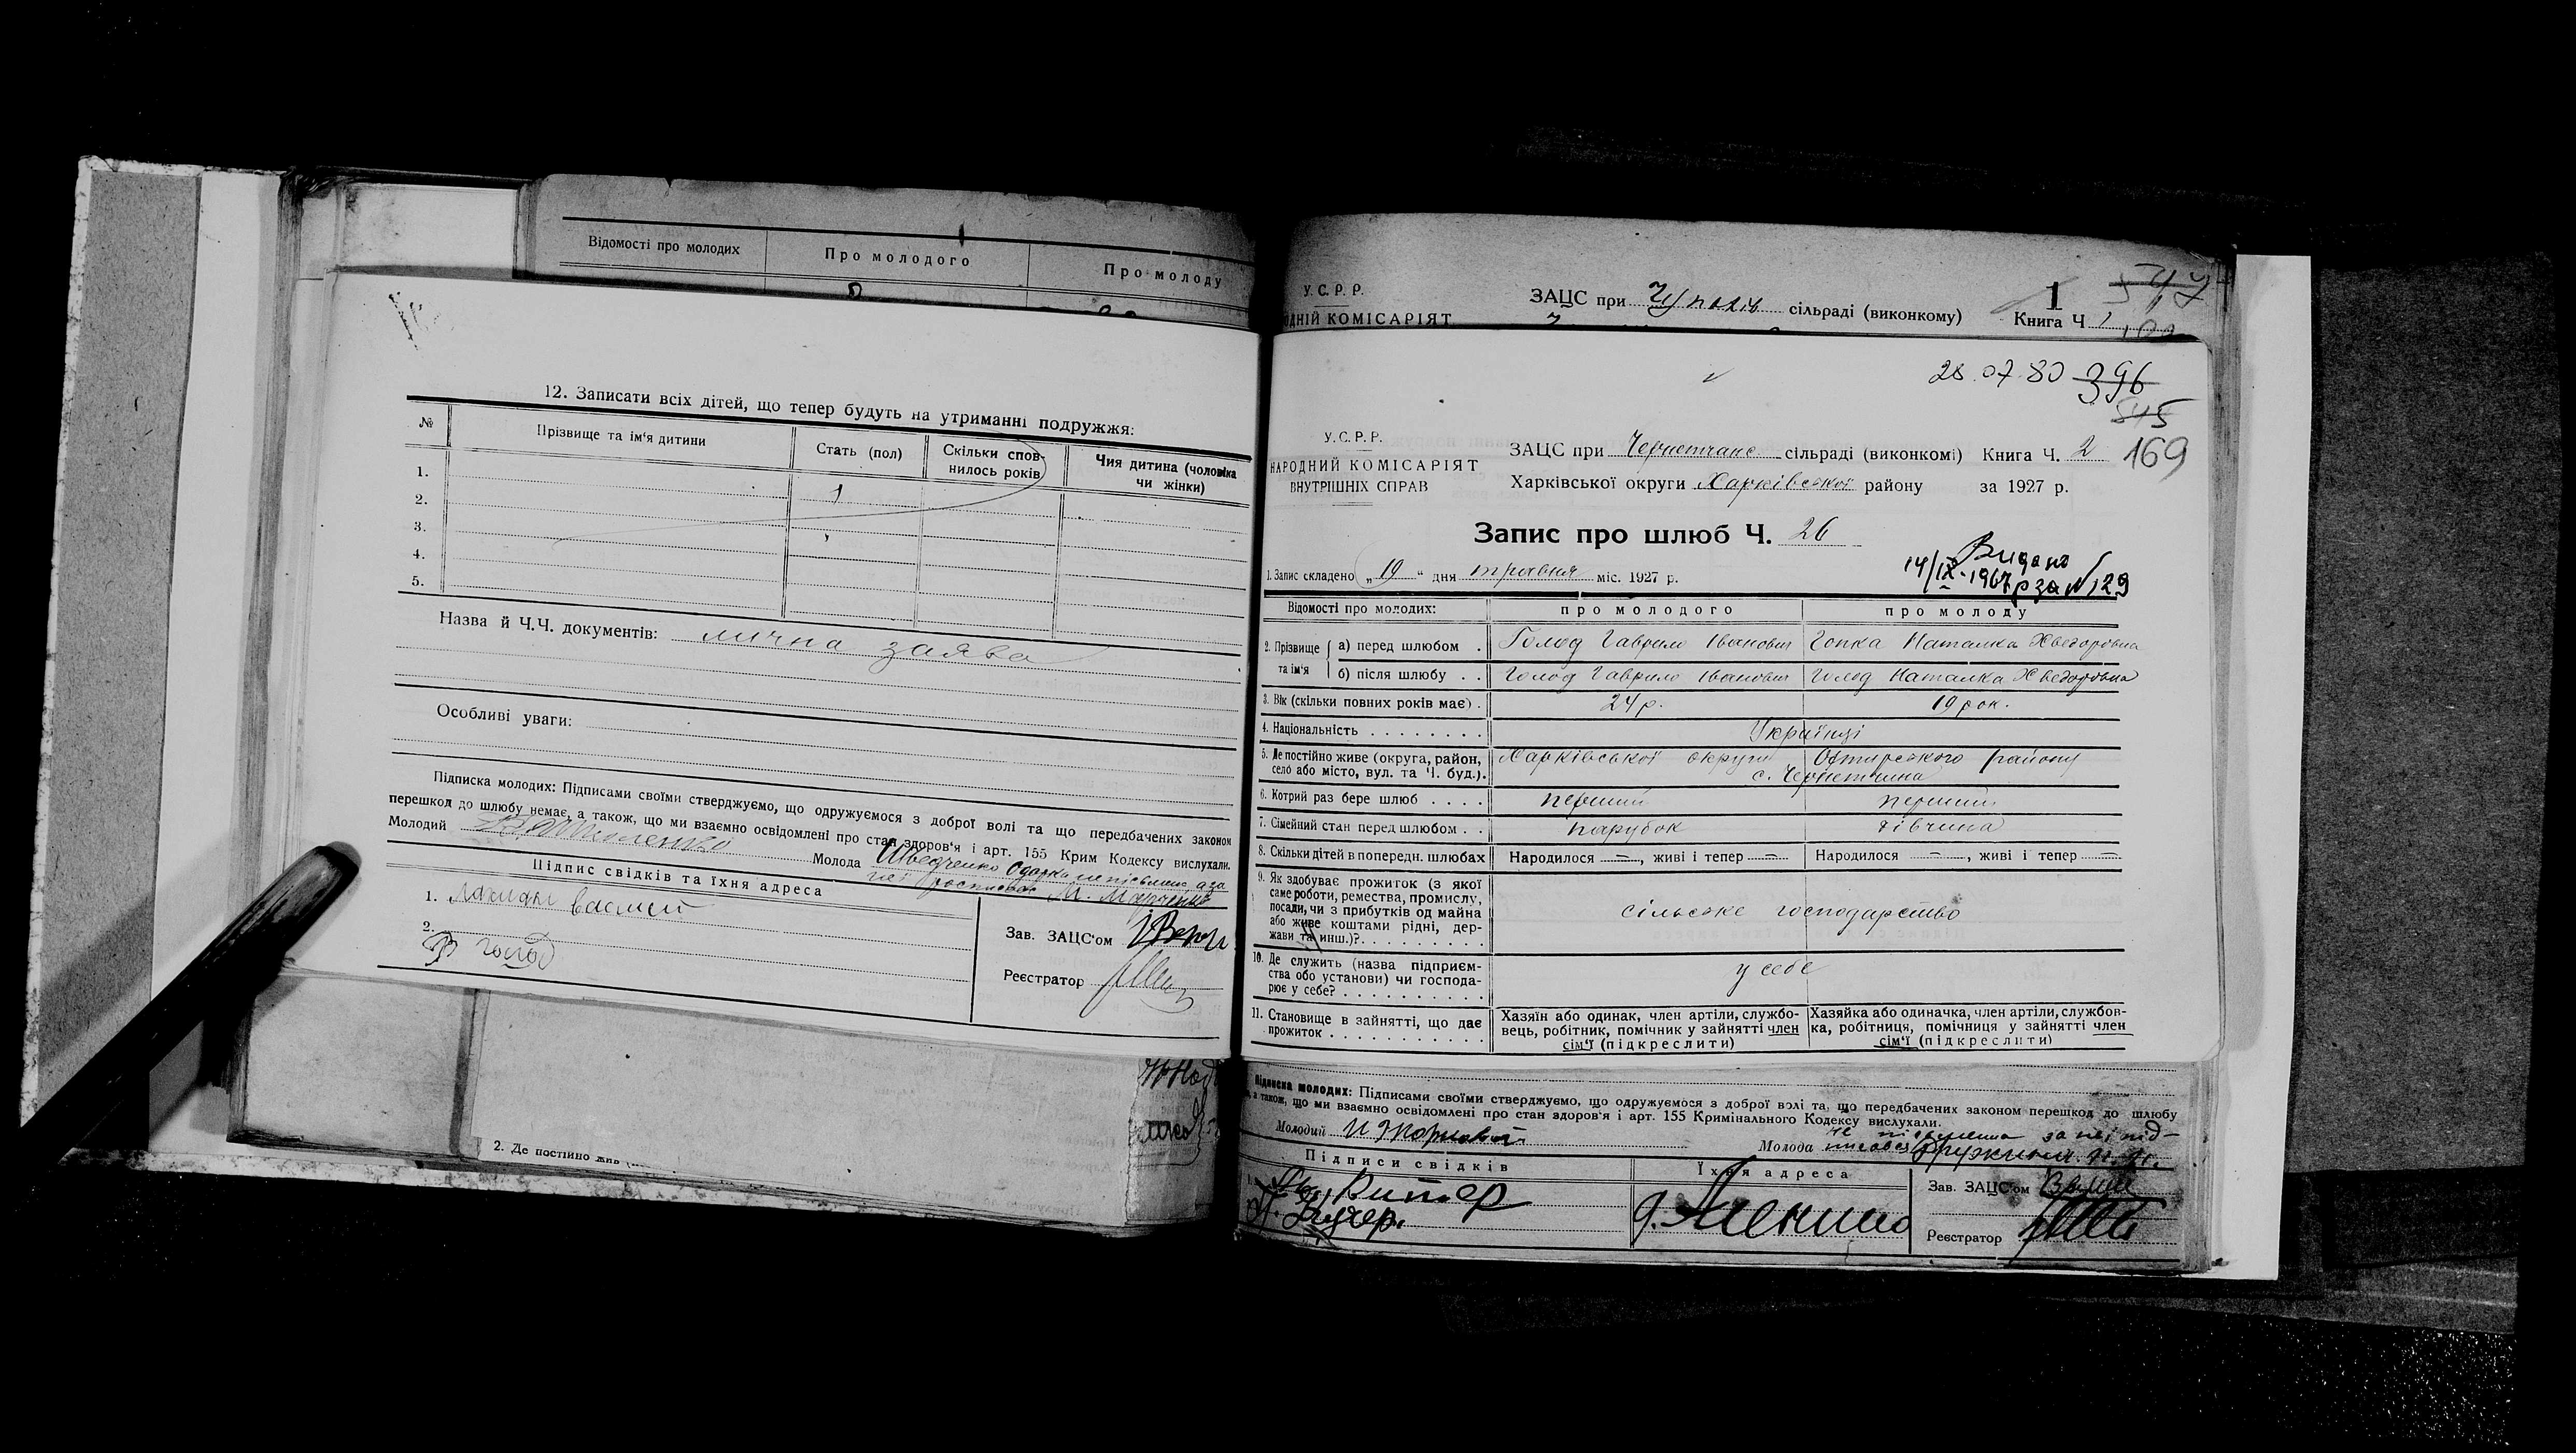 Відомості про молодих
Про молодого
Про молоду
12. Записати всіх дітей, що тепер будуть на утриманні подружжя:
№
Прізвище та ім'я дитини
Стать (пол)
Скільки спов-
нилось років
Чия дитина (чоловіка
чи жінки)
1.
2.
3.
4.
5.
Назва й Ч.Ч. документів: лична заява
Особливі уваги:
Підписка молодих: Підписами своїми стверджуємо, що одружуємося з доброї волі та що передбачених законом
перешкод до шлюбу немає, а також, що ми взаємно освідомлені про стан здоров'я і арт. 155 Крим Кодексу вислухали.
Молодий
Молода Шведченко Одарка неписьмена, а за
неї росписавс М. Марченко
Підпис свідків та їхня адреса
1.
2.
В Голод
Зав. ЗАЦС'ом
Реєстратор
2. Де постійно жив
У.С.Р.Р.
ЗАЦС при Чупахів сільраді (виконкому)
1
547
ОДНІЙ КОМІСАРІЯТ
Книга Ч 1
28.07.80 396
545
У.С.Р.Р.
НАРОДНИЙ КОМІСАРІЯТ
ВНУТРІШНІХ СПРАВ
ЗАЦС при Чернетчанс сільраді (виконкомі) Книга Ч. 2 169
Харківської округи Харківської району за 1927 р.
Запис про шлюб Ч. 26
Видано
14/IX-1967 р за № 129
1. Запис складено „19" дня травня міс. 1927 р.
Відомості про молодих:
про молодого
про молоду
2. Прізвище та ім'я
а) перед шлюбом . Голод Гаврило Іванович Гопка Наталка Хведоровна
б) після шлюбу . . Голод Гаврило Іванович Голод Наталка Хведоровна
3. Вік (скільки повних років має) . 24 р. 19 рок.
4. Національність . . . . . . . . Українці
5. Де постійно живе (округа, район,
село або місто, вул. та Ч. буд.).
Харківської округи Охтирського району
с. Чернетчина
6. Котрий раз бере шлюб . . . . перший перший
7. Сімейний стан перед шлюбом . . парубок дівчина
8. Скільки дітей в попередн. шлюбах Народилося —, живі і тепер — Народилося —, живі і тепер —
9. Як здобуває прожиток (з якої
саме роботи, ремества, промислу,
посади, чи з прибутків од майна
або живе коштами рідні, дер-
жави та инш.)?. . . . . . . . .
сільське господарство
10. Де служить (назва підприєм-
ства або установи) чи господа-
рює у себе? . . . . . . . . . .
у себе
11. Становище в зайнятті, що дає
прожиток . . . . . . . . . . . .
Хазяїн або одинак, член артіли, службо-
вець, робітник, помічник у зайнятті член
сім'ї (підкреслити)
Хазяйка або одиначка, член артіли, службов-
ка, робітниця, помічниця у зайнятті член
сім'ї (підкреслити)
Підписка молодих: Підписами своїми стверджуємо, що одружуємося з доброї волі та, що передбачених законом перешкод до шлюбу
а також, що ми взаємно освідомлені про стан здоров'я і арт. 155 Кримінального Кодексу вислухали.
Молодий
Молода не письменна за неї під-
Підписи свідків
Їхня адреса
Зав. ЗАЦС'ом
Реєстратор